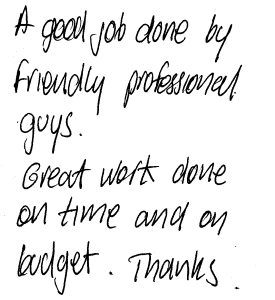 A good job done by
friendly professional
guys.
Great work done
on time and on
budget. Thanks.